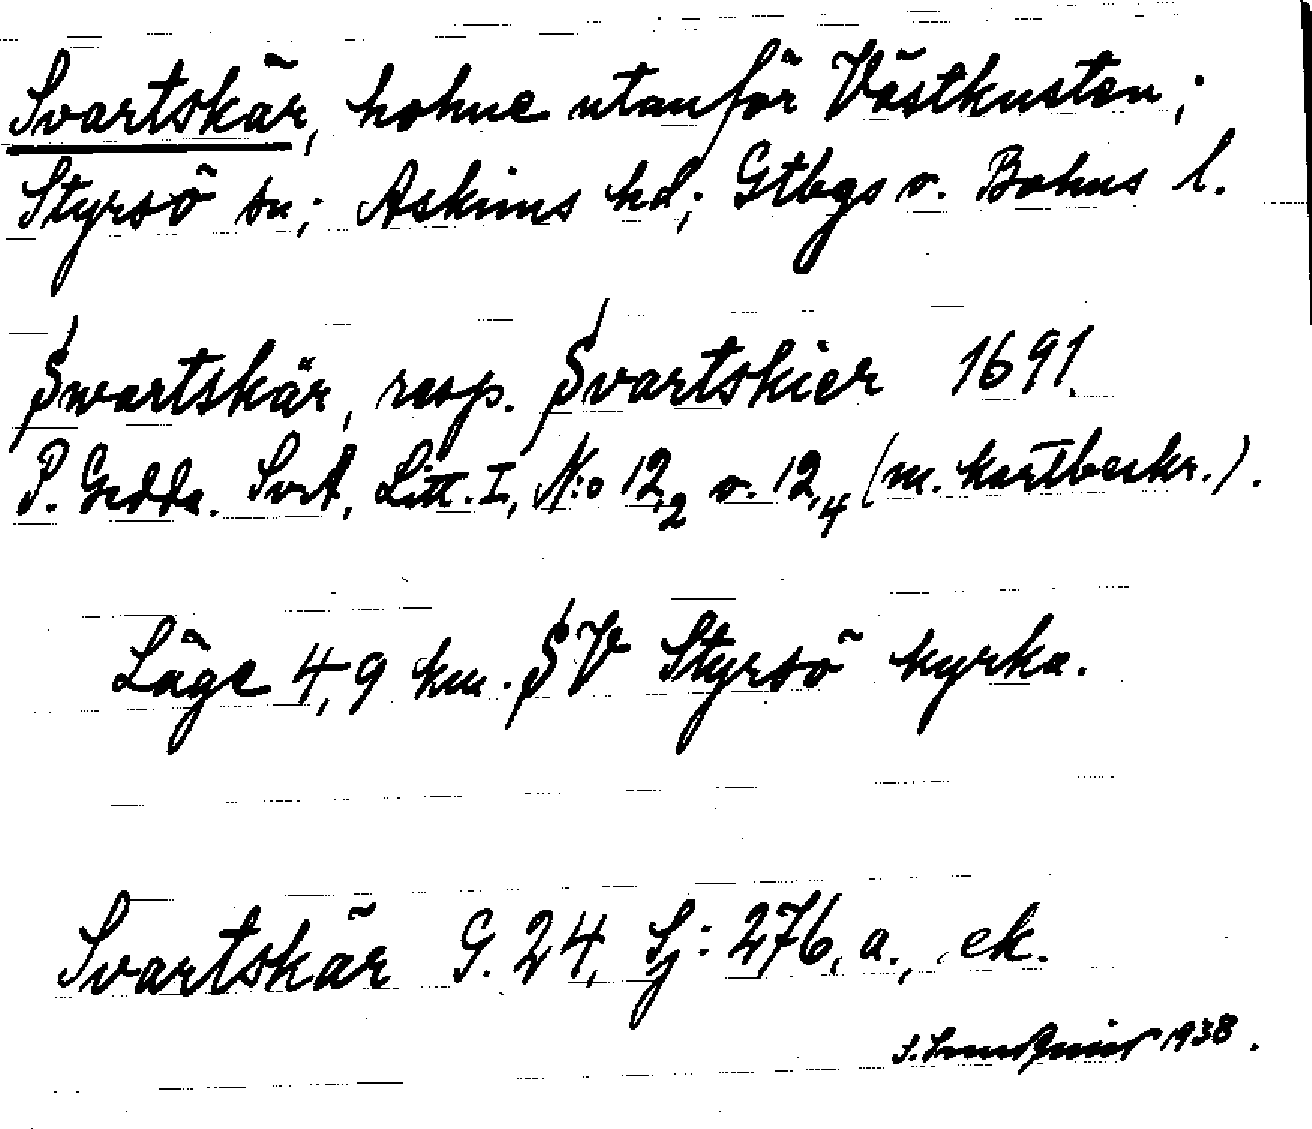 Svartskär, holme utanför Västkusten;
Styrsö sn; Askims hd; Gtbgs o. Bohus l.
Swartskär, resp. Svartskier 1691.
P. Gedda. SvA, Litt. I, N:o 12,2 o. 12,4 (m. kartbeskr.).
Läge 4,9 km. SV Styrsö kyrka.
Svartskär G. 24, Sj: 276, a., ek.
1938.